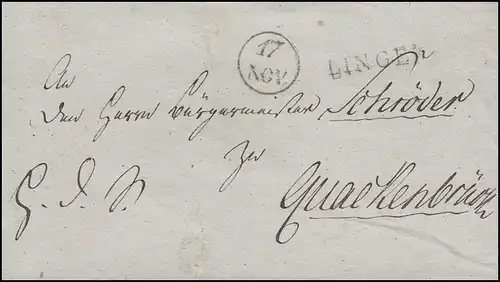 17
NOV.
LINGEN
An
den Herrn Bürgermeister Schröder
zu
Quackenbrück